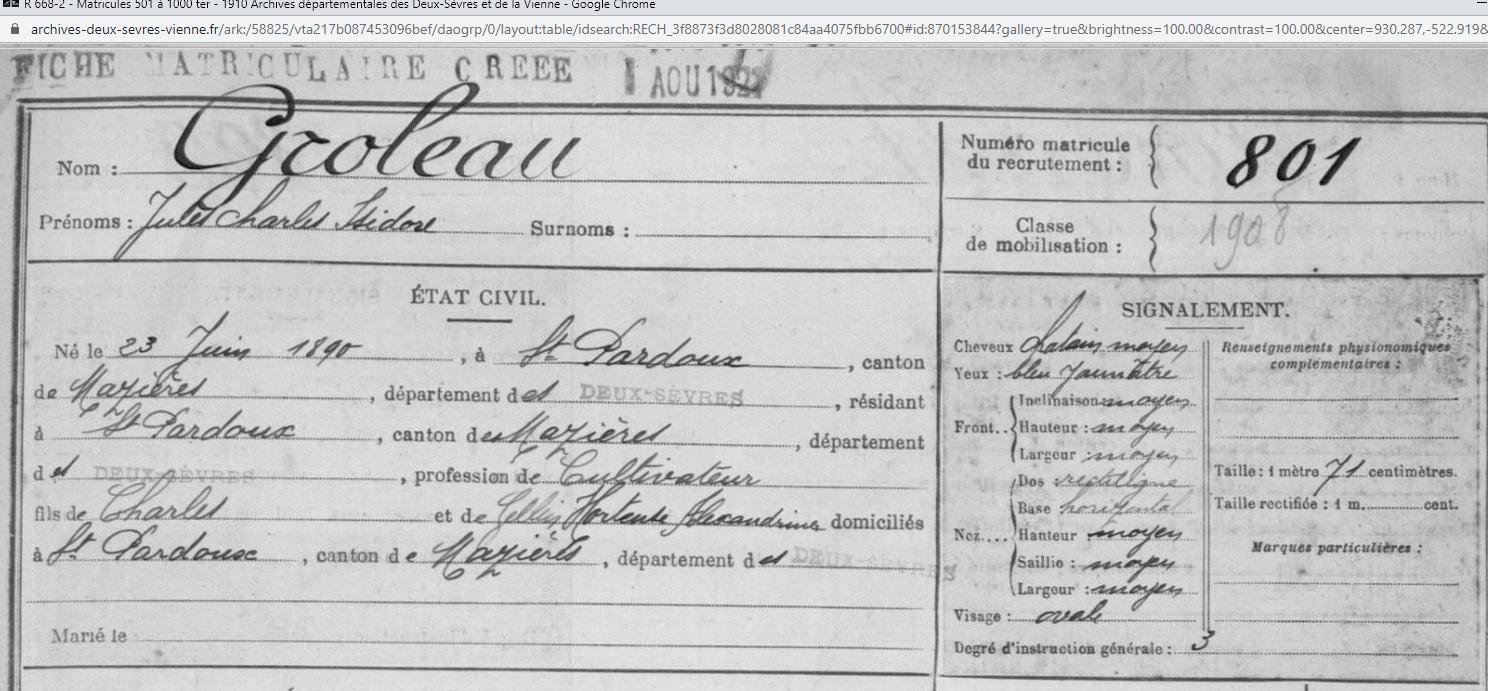 R 668-2 - Matricules 501 à 1000 ter - 1910 Archives départementales des Deux-Sèvres et de la Vienne - Google Chrome
archives-deux-sevres-vienne.fr/ark:/58825/vta217b087453096bef/daogrp/0/layout:table/idsearch:RECH_3f8873f3d8028081c84aa4075fbb6700#id:870153844?gallery=true&brightness=100.00&contrast=100.00&center=930.287,-522.919&
FICHE MATRICULAIRE CREEE 1 AOU
Nom : Groleau
Prénoms : Jules Charles Isidore Surnoms :
Numéro matricule
du recrutement : 801
Classe
de mobilisation : 1908
ÉTAT CIVIL.
Né le 23 Juin 1890, à St Pardoux, canton
de Mazières, département des DEUX-SÈVRES, résidant
à St Pardoux, canton de Mazières, département
des DEUX-SÈVRES, profession de Cultivateur
fils de Charles et de Hortense Alexandrine domiciliés
à St Pardoux, canton de Mazières, département des DEUX-SÈVRES
Marié le
SIGNALEMENT.
Cheveux châtain moyen
Yeux : bleu jaunâtre
Front.. Inclinaison moyen
Hauteur : moyen
Largeur : moyen
Nez.... Dos : rectiligne
Base horizontal
Hauteur moyen
Saillie : moyen
Largeur : moyen
Visage : ovale
Degré d'instruction générale : 3
Renseignements physionomiques
complémentaires :
Taille : 1 mètre 71 centimètres.
Taille rectifiée : 1 m. cent.
Marques particulières :